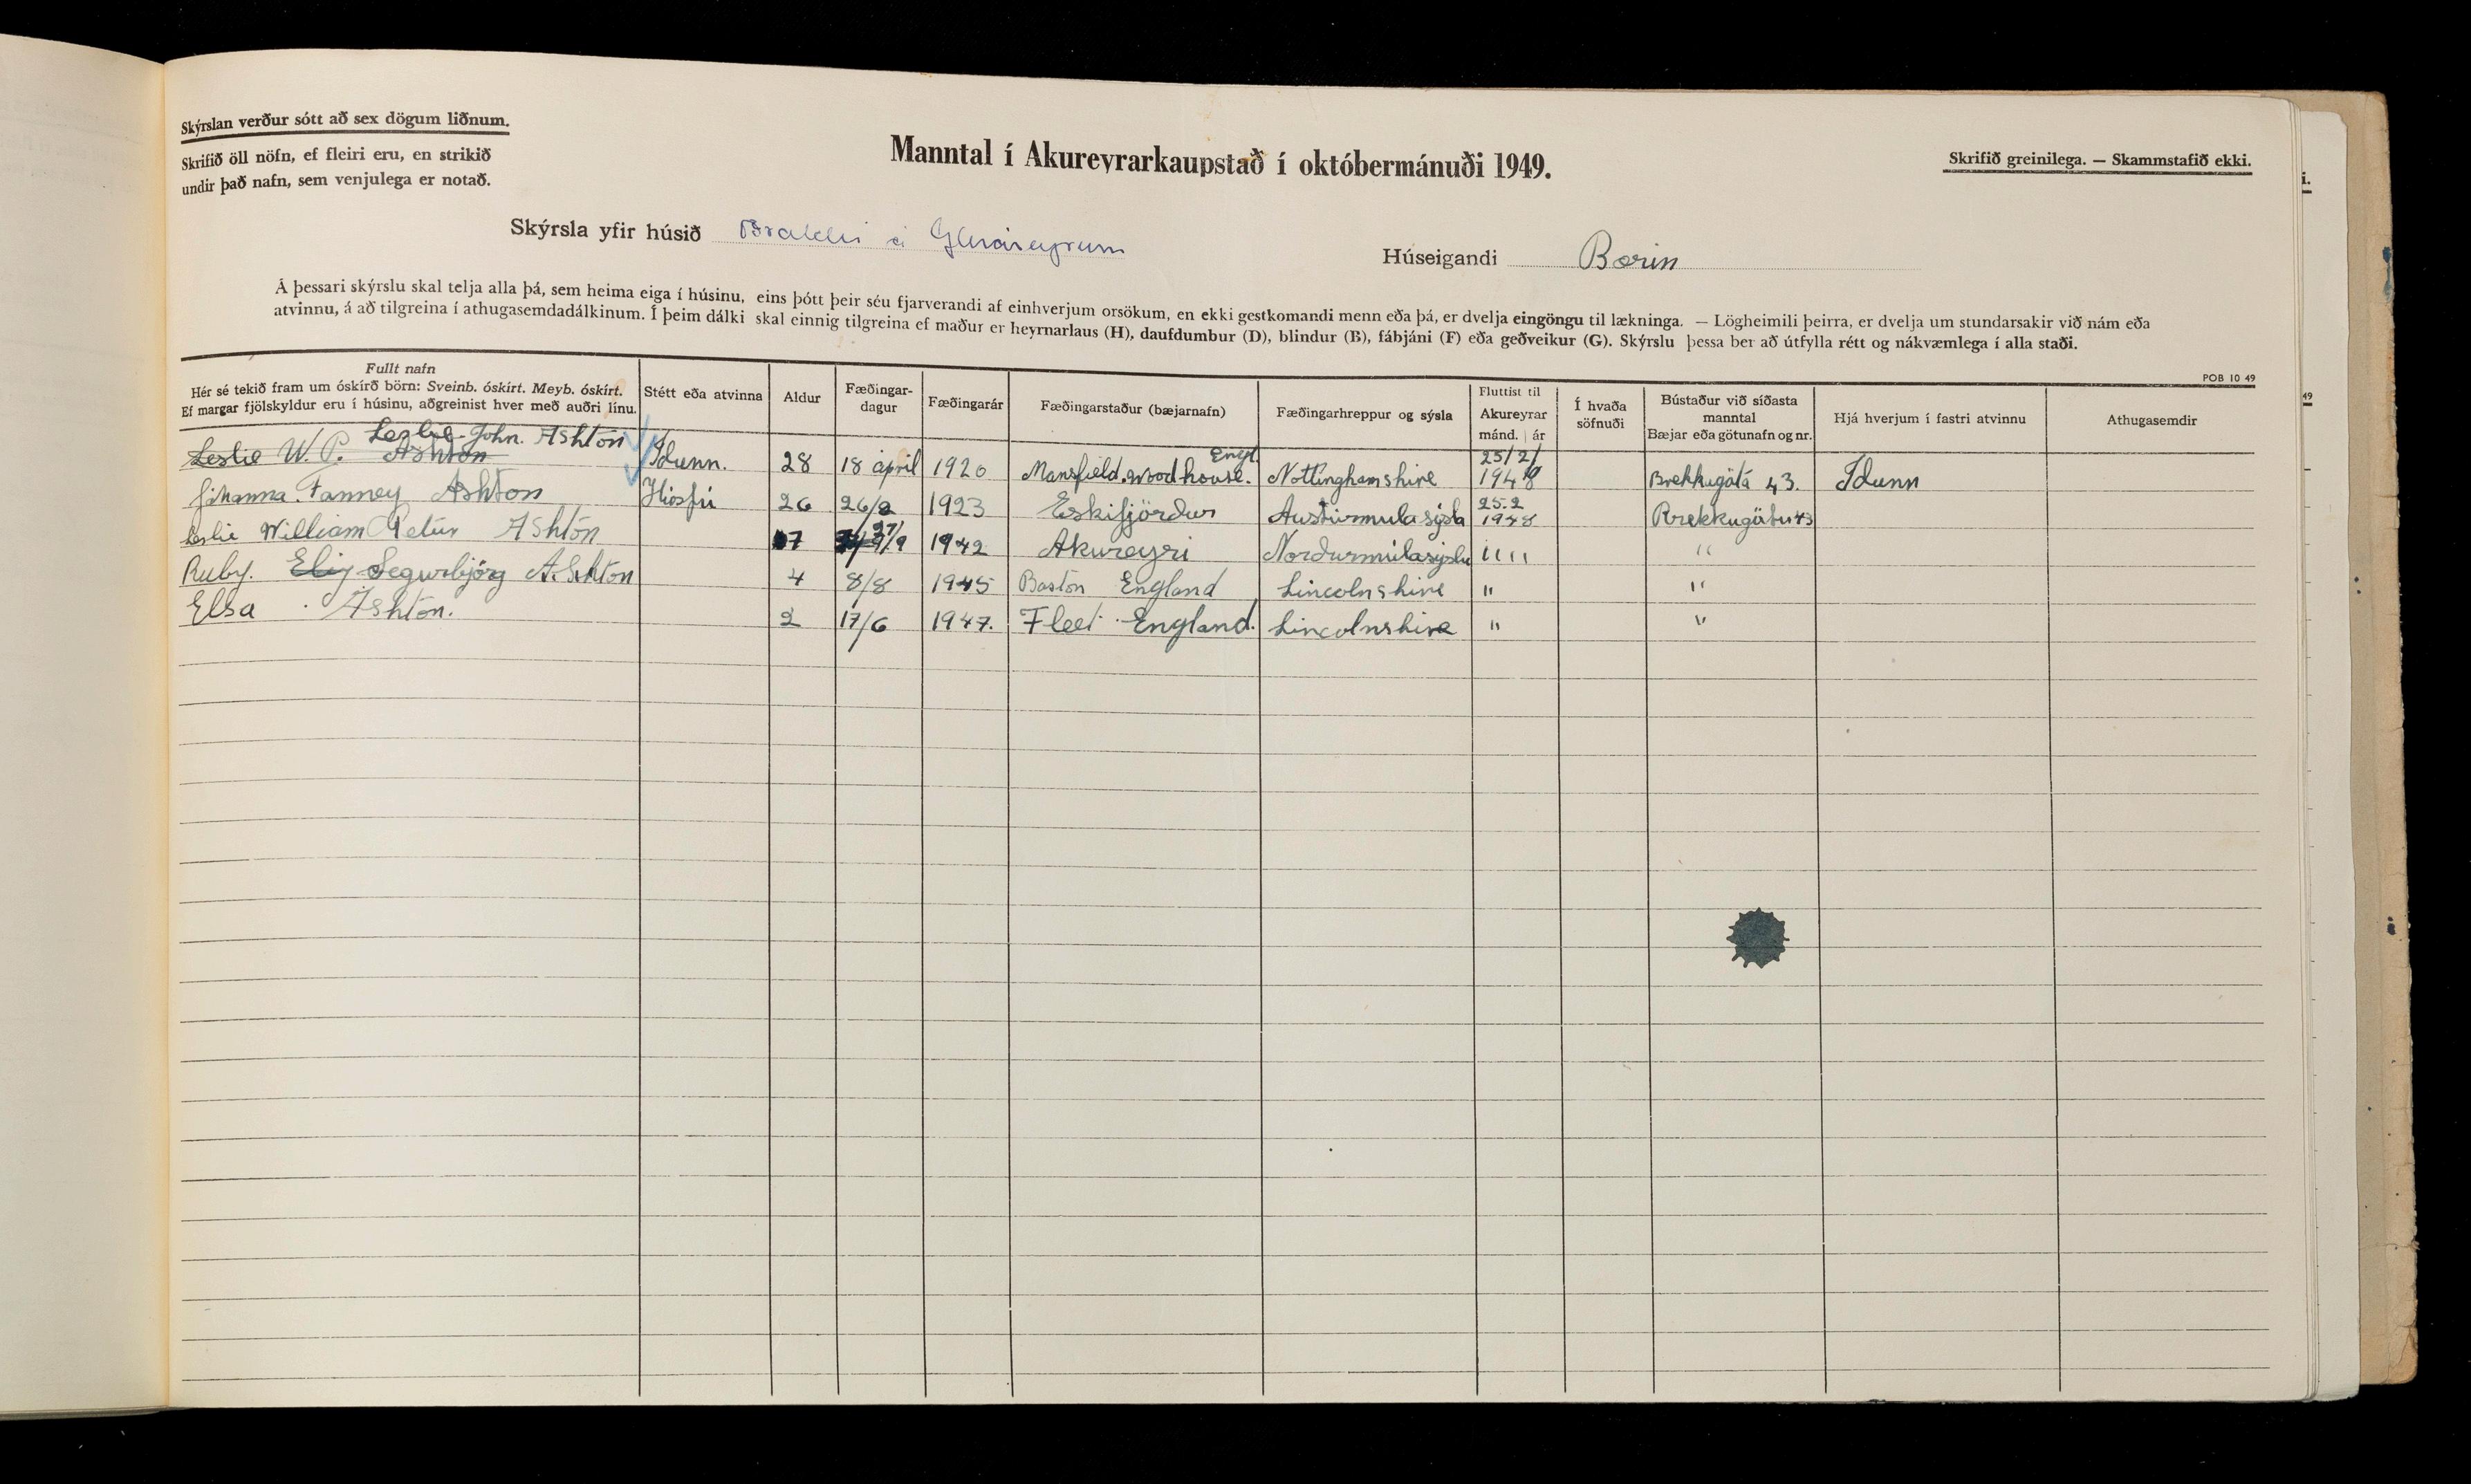 Skýrslan verður sótt að sex dögum liðnum.
Skrifið öll nöfn, ef fleiri eru, en strikið
undir það nafn, sem venjulega er notað.
Manntal í Akureyrarkaupstað í októbermánuði 1949.
Skrifið greinilega. — Skammstafið ekki.
Skýrsla yfir húsið Braggi á Gleráeyrum
Húseigandi Bærin
Á þessari skýrslu skal telja alla þá, sem heima eiga í húsinu, eins þótt þeir séu fjarverandi af einhverjum orsökum, en ekki gestkomandi menn eða þá, er dvelja eingöngu til lækninga. — Lögheimili þeirra, er dvelja um stundarsakir við nám eða
atvinnu, á að tilgreina í athugasemdadálkinum. Í þeim dálki skal einnig tilgreina ef maður er heyrnarlaus (H), daufdumbur (D), blindur (B), fábjáni (F) eða geðveikur (G). Skýrslu þessa ber að útfylla rétt og nákvæmlega í alla staði.
POB 10 49
Fullt nafn
Hér sé tekið fram um óskírð börn: Sveinb. óskírt. Meyb. óskírt.
Ef margar fjölskyldur eru í húsinu, aðgreinist hver með auðri línu.
Stétt eða atvinna
Aldur
Fæðingar-
dagur
Fæðingarár
Fæðingarstaður (bæjarnafn)
Fæðingarhreppur og sýsla
Fluttist til
Akureyrar
mánd. | ár
Í hvaða
söfnuði
Bústaður við síðasta
manntal
Bæjar eða götunafn og nr.
Hjá hverjum í fastri atvinnu
Athugasemdir
Leslie John. Ashton
Leslie W. P. Ashton Idunn. 28 18 april 1920 Mansfield.woodhouse. Engl. Nottinghamshire 25/2/ 1948 Brekkugötá 43. Idunn
Jóhanna. Fanney Ashton Húsfrú 26 26/2 1923 Eskifjördur Austurmulasýsla 25.2 1948 Brekkugötu 43
Leslie William Petúr Ashton 7 27/9 1942 Akureyri Nordurmúlasýslu " " "
Ruby. Segurbjörg Ashton 4 8/8 1945 Boston England Lincolnshire " "
Elsa Ashton. 2 17/6 1947. Fleet England. Lincolnshire " "